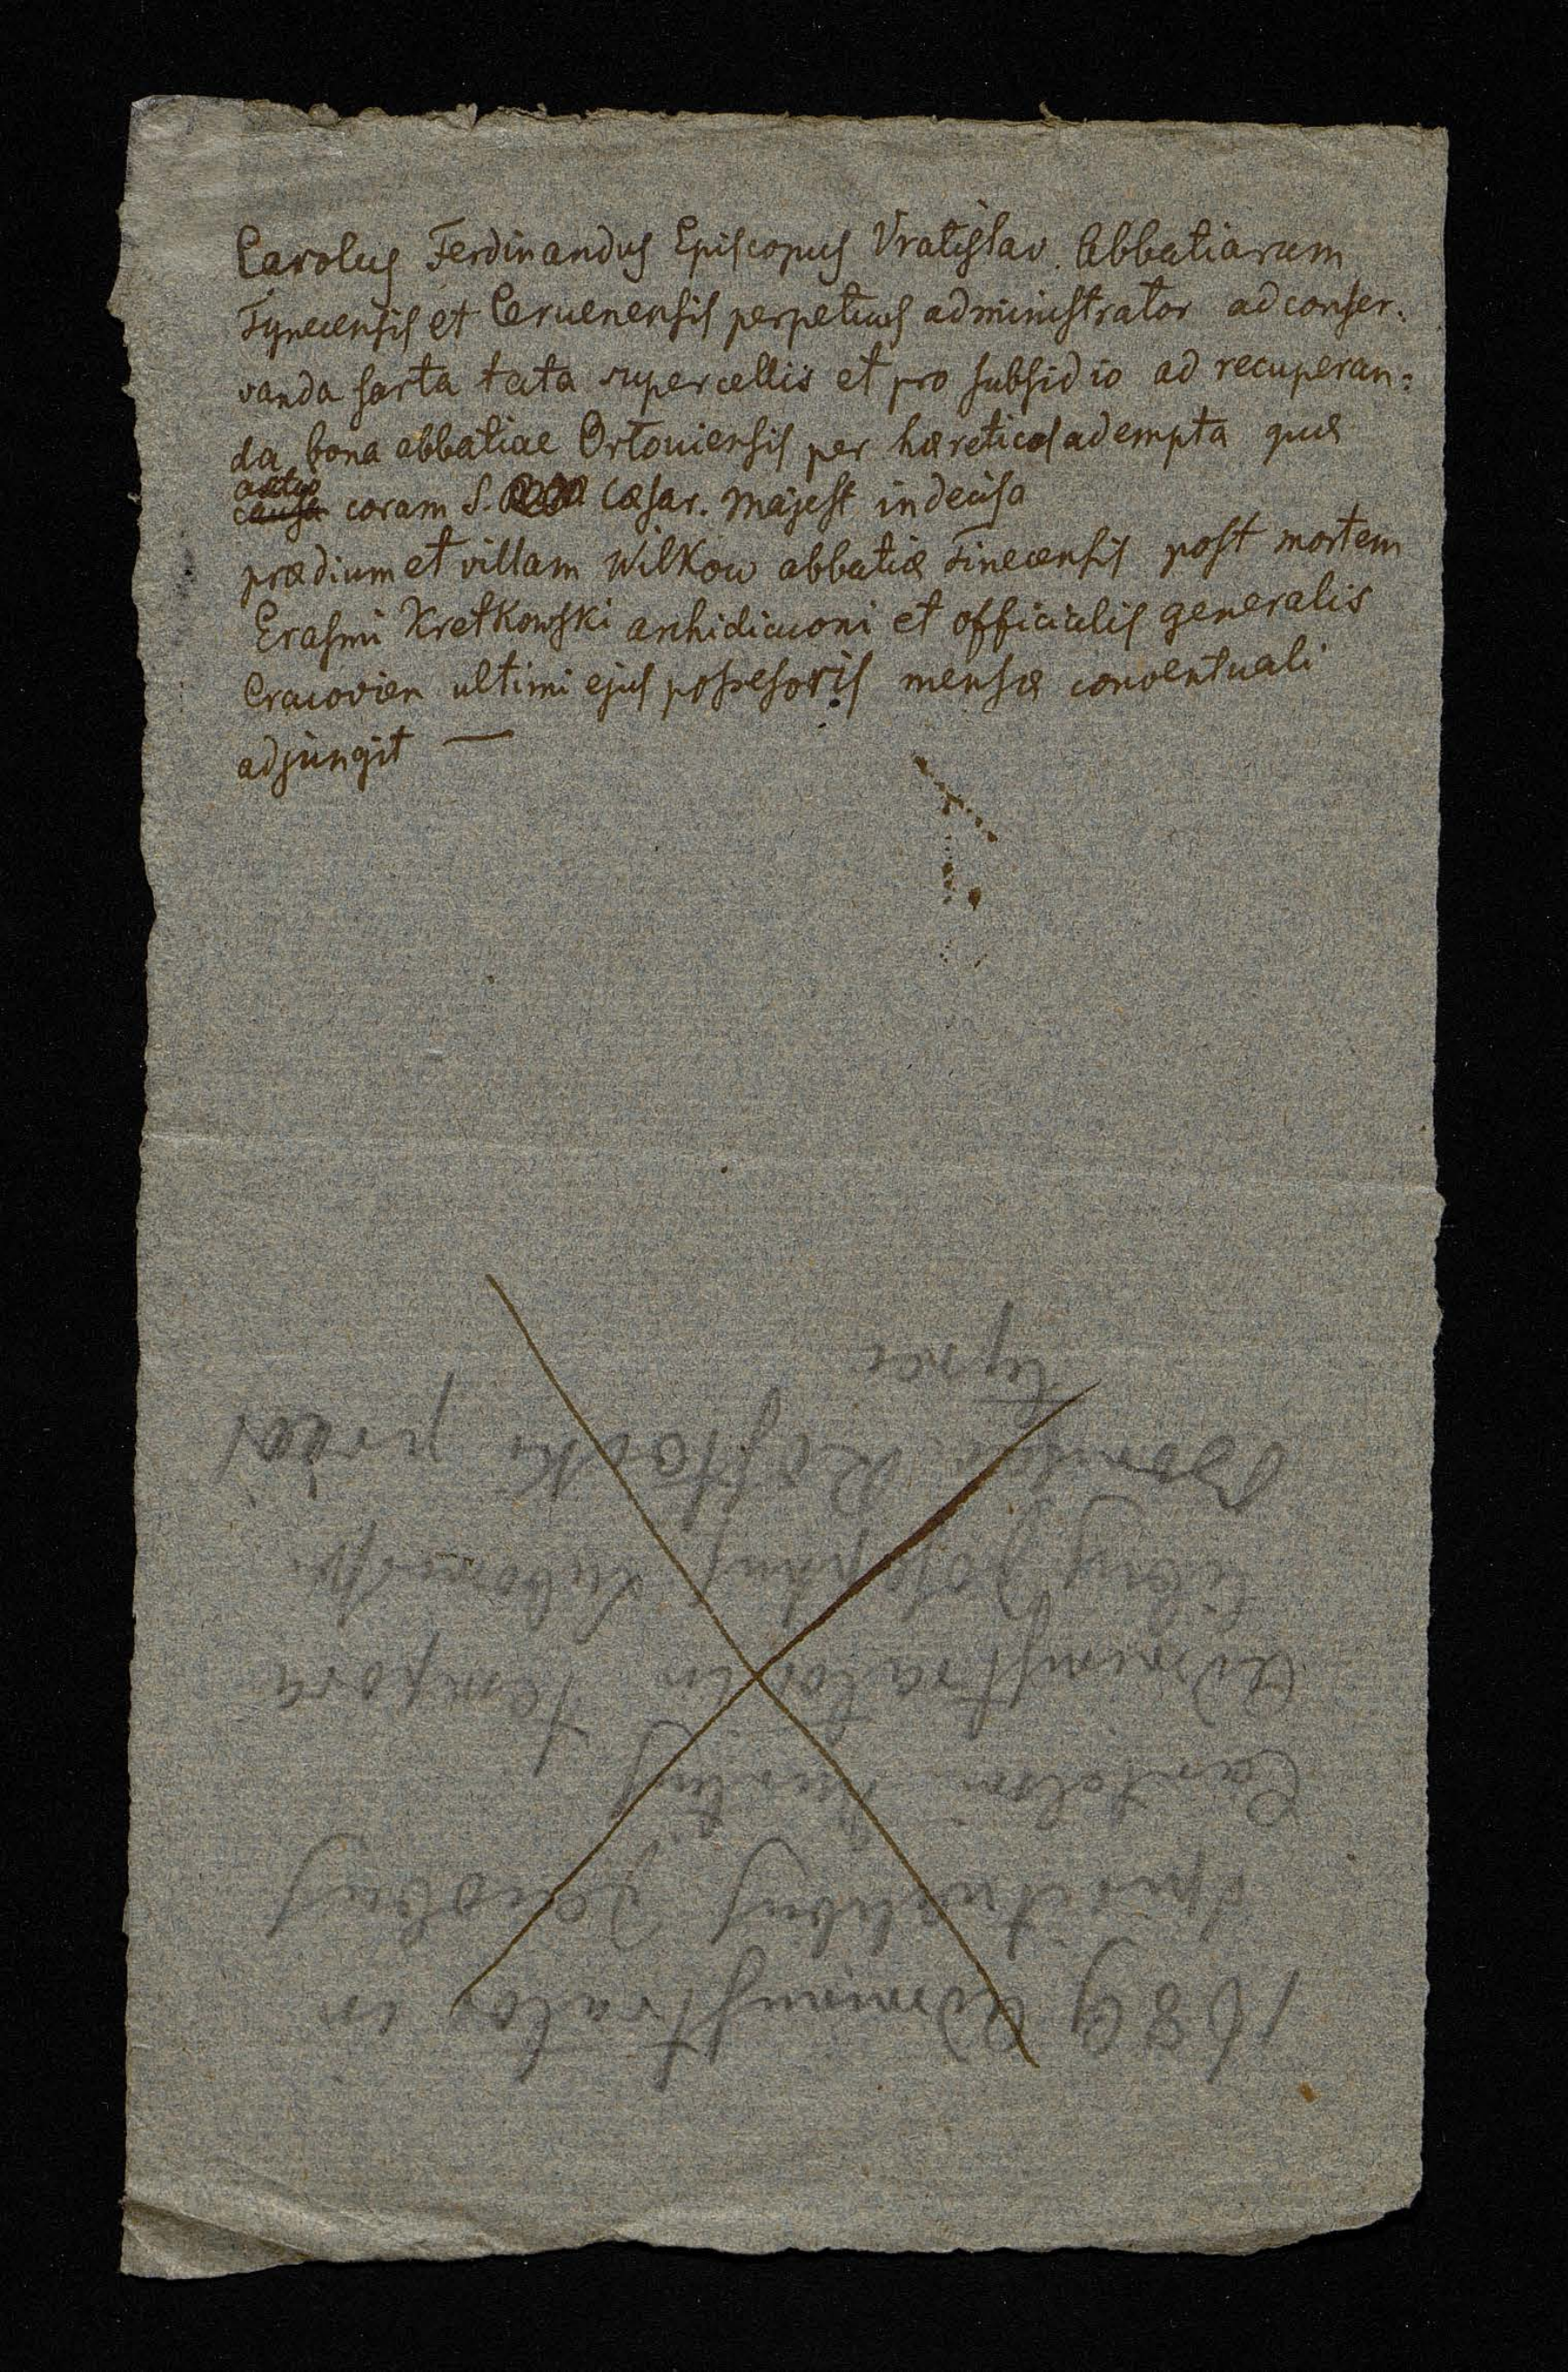 Carolus Ferdinandus Episcopus Vratislav. Abbatiarum
Tynecensis et Cervenensis perpetuus administrator ad conser:
vanda sarta tata supercellis et pro subsidio ad recuperan:
da bona abbatiae Ortoviensis per hæreticos adempta quæ
actio
causa coram S. Cæsar. Majest indecisa
prædium et villam Wilkow abbatiæ Tinecensis post mortem
Erasmi Kretkowski archidiaconi et officialis generalis
Cracovien ultimi ejus possesoris mensæ conventuali
adjungit —
1689 Administrator in
spiritualibus Jacobus
Administrator in tempora
libus Josephus Lubomirski